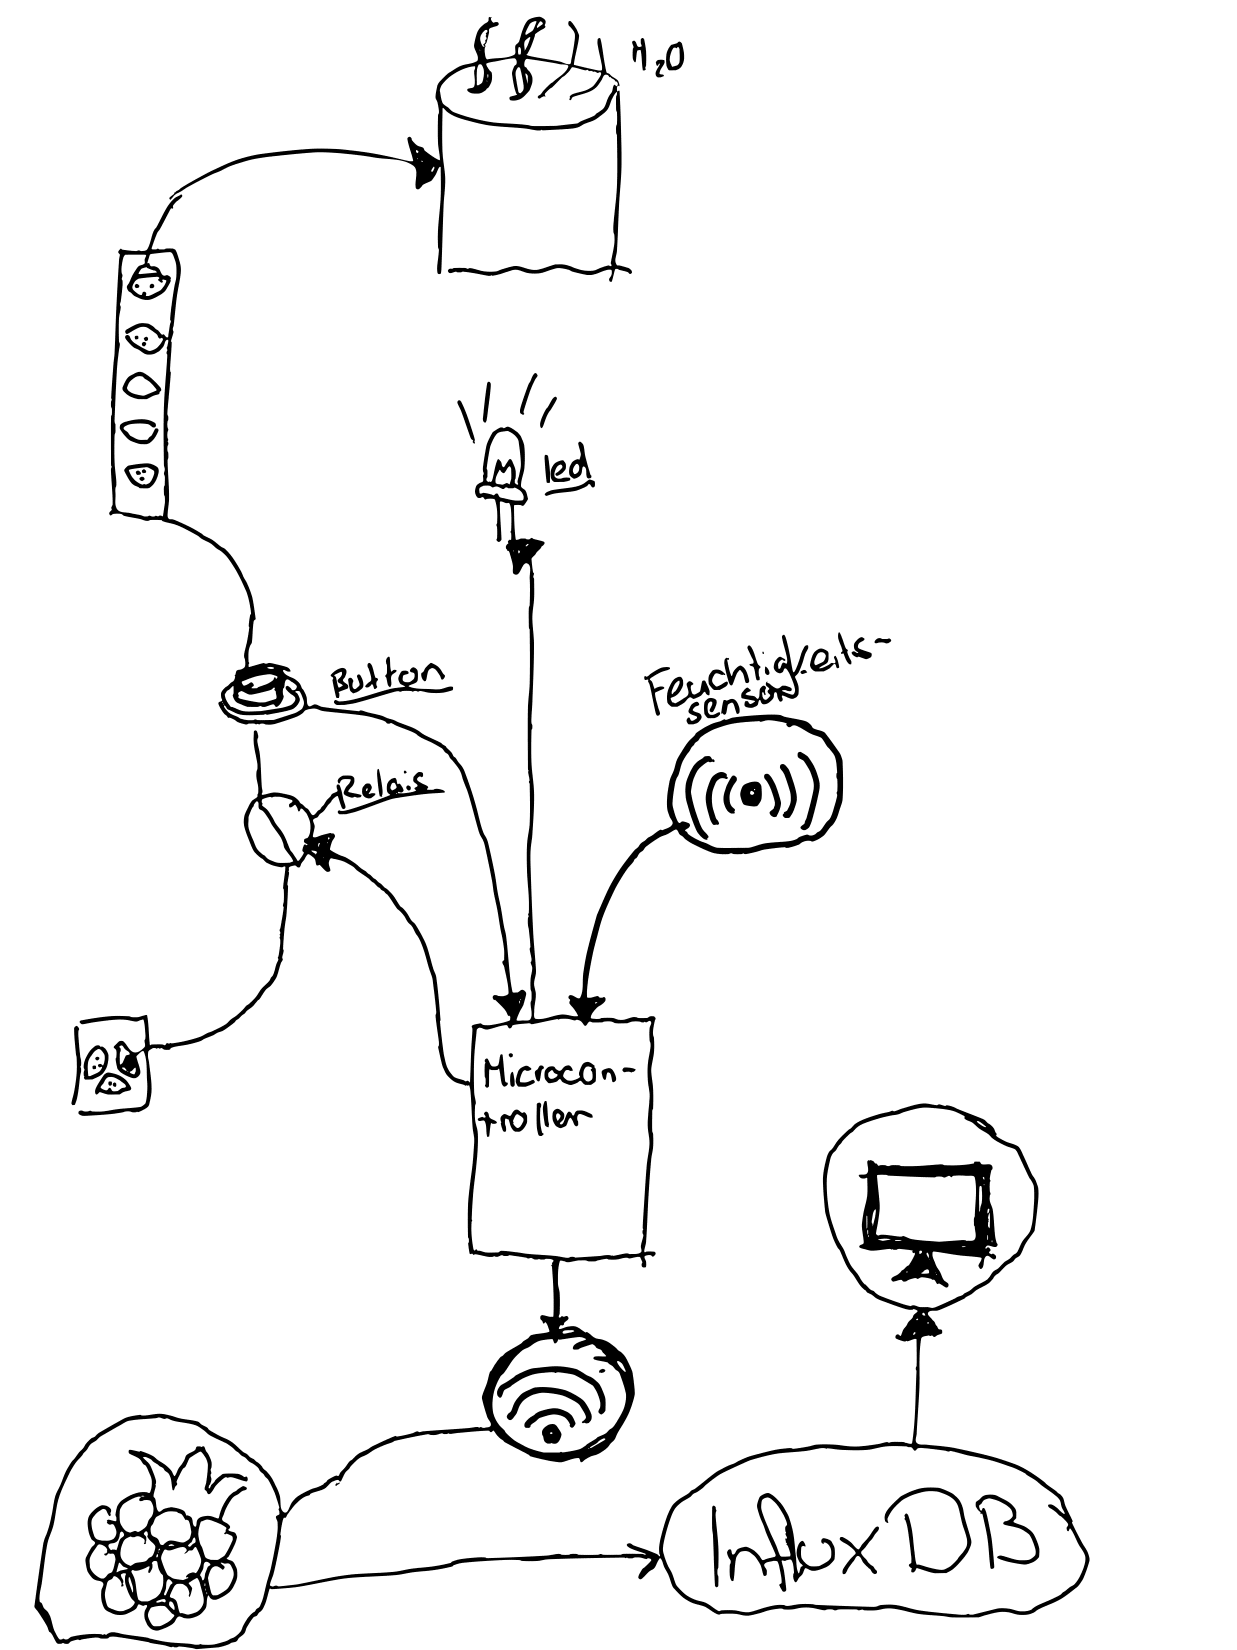 H₂O
led
Button
Feuchtigkeits-
sensor
Relais
Microcon-
troller
InfluxDB